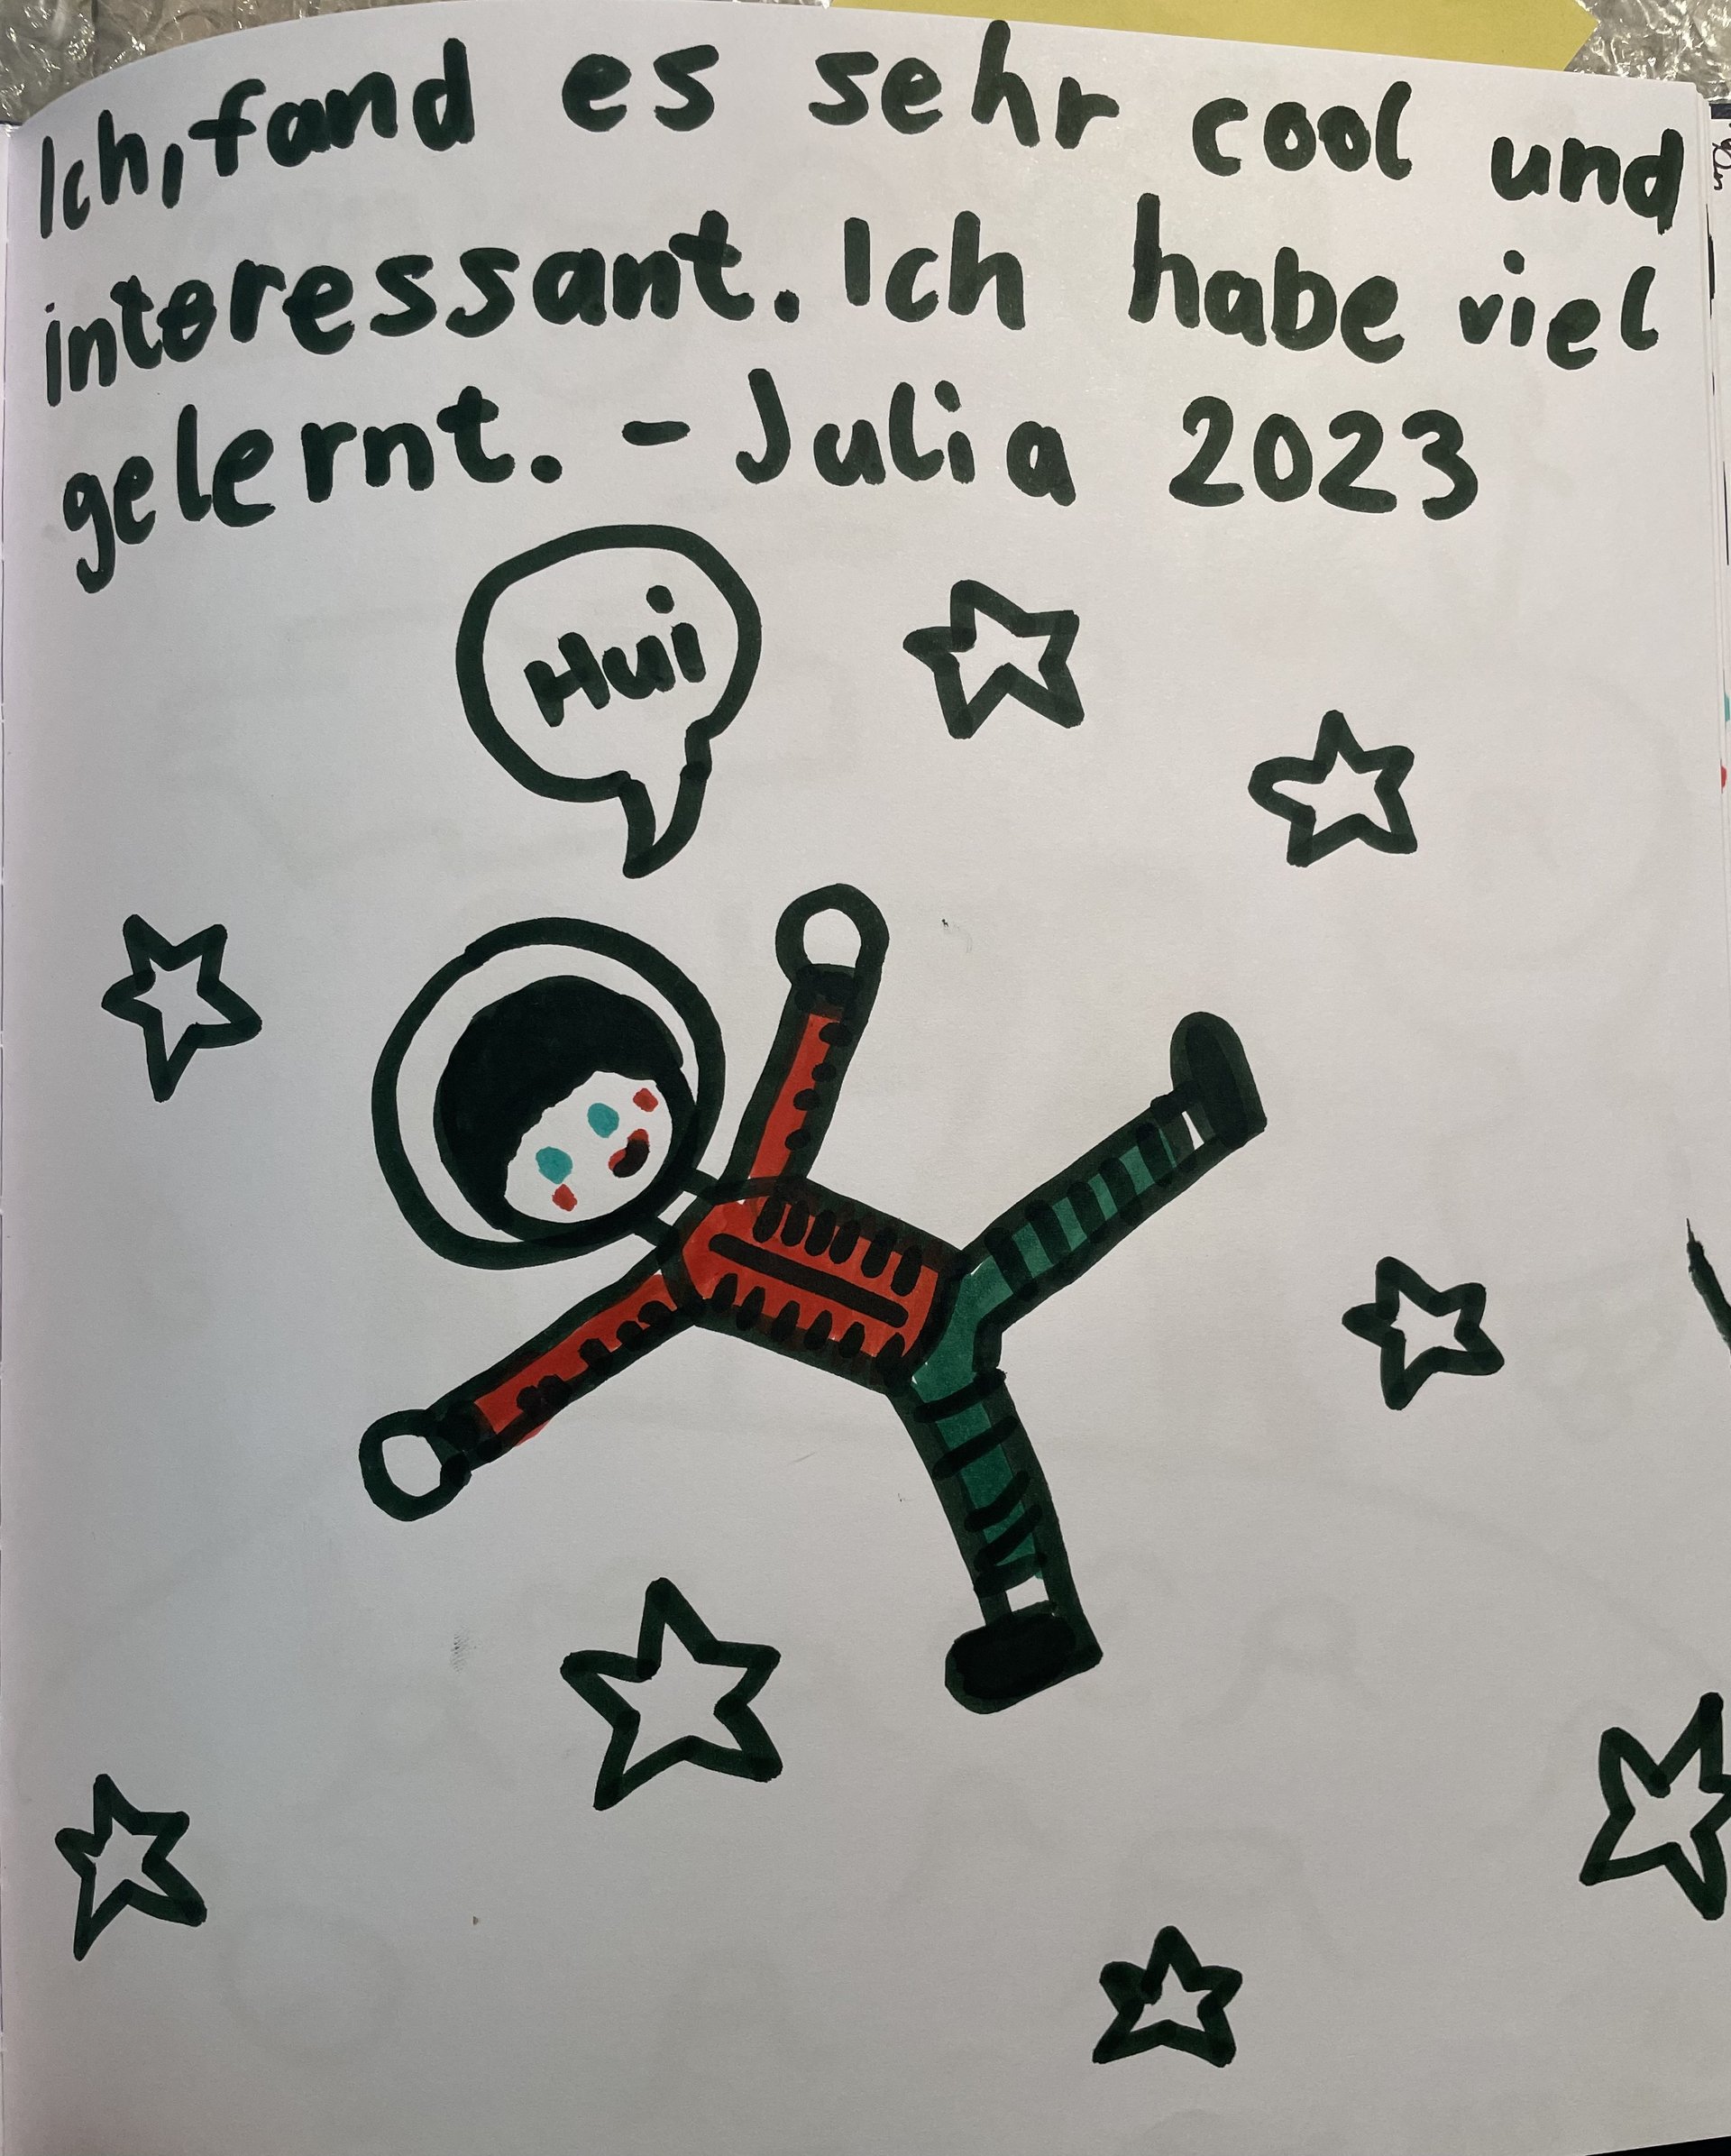 Ich, fand es sehr cool und
interessant. Ich habe viel
gelernt. - Julia 2023
Hui